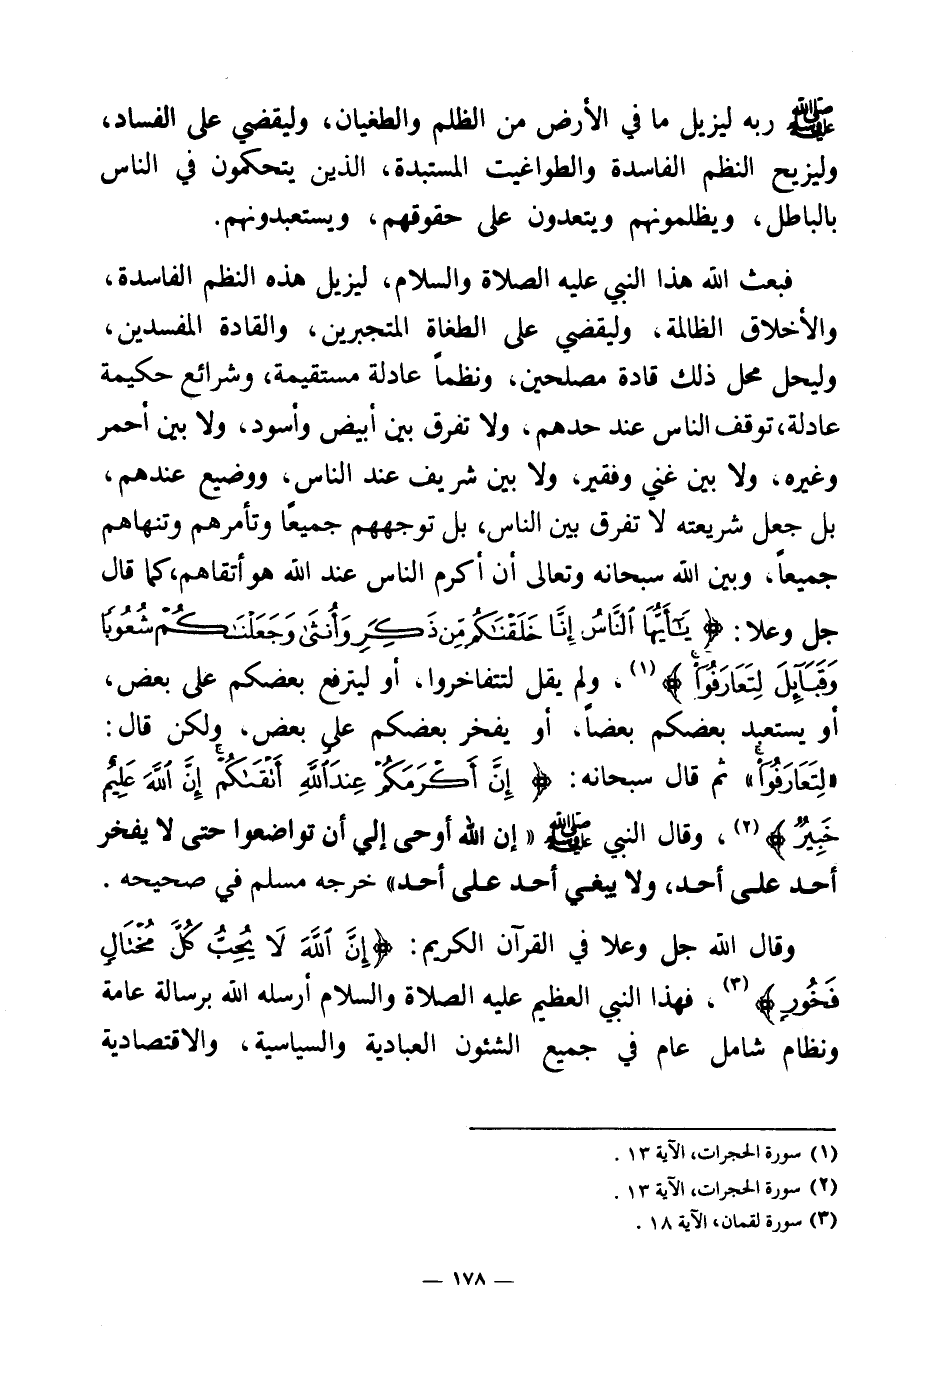 ﷺ ربه ليزيل ما في الأرض من الظلم والطغيان، وليقضي على الفساد،
وليزيح النظم الفاسدة والطواغيت المستبدة، الذين يتحكمون في الناس
بالباطل، ويظلمونهم ويتعدون على حقوقهم، ويستعبدونهم.
فبعث الله هذا النبي عليه الصلاة والسلام، ليزيل هذه النظم الفاسدة،
والأخلاق الظالمة، وليقضي على الطغاة المتجبرين، والقادة المفسدين،
وليحل محل ذلك قادة مصلحين، ونظماً عادلة مستقيمة، وشرائع حكيمة
عادلة، توقف الناس عند حدهم، ولا تفرق بين أبيض وأسود، ولا بين أحمر
وغيره، ولا بين غني وفقير، ولا بين شريف عند الناس، ووضيع عندهم،
بل جعل شريعته لا تفرق بين الناس، بل توجههم جميعًا وتأمرهم وتنهاهم
جميعاً، وبين الله سبحانه وتعالى أن أكرم الناس عند الله هو أتقاهم، كما قال
جل وعلا: ﴿ يَٰٓأَيُّهَا ٱلنَّاسُ إِنَّا خَلَقْنَٰكُم مِّن ذَكَرٍ وَأُنثَىٰ وَجَعَلْنَٰكُمْ شُعُوبًا
وَقَبَآئِلَ لِتَعَارَفُوٓا۟ ﴾ (١)، ولم يقل لتتفاخروا، أو ليترفع بعضكم على بعض،
أو يستعبد بعضكم بعضاً، أو يفخر بعضكم على بعض، ولكن قال:
«لِتَعَارَفُوٓا۟» ثم قال سبحانه: ﴿ إِنَّ أَكْرَمَكُمْ عِندَ ٱللَّهِ أَتْقَىٰكُمْ إِنَّ ٱللَّهَ عَلِيمٌ
خَبِيرٌ ﴾ (٢)، وقال النبي ﷺ « إن الله أوحى إلي أن تواضعوا حتى لا يفخر
أحد على أحد، ولا يبغي أحد على أحد» خرجه مسلم في صحيحه .
وقال الله جل وعلا في القرآن الكريم: ﴿إِنَّ ٱللَّهَ لَا يُحِبُّ كُلَّ مُخْتَالٍ
فَخُورٍ ﴾ (٣)، فهذا النبي العظيم عليه الصلاة والسلام أرسله الله برسالة عامة
ونظام شامل عام في جميع الشئون العبادية والسياسية، والاقتصادية
(١) سورة الحجرات، الآية ١٣ .
(٢) سورة الحجرات، الآية ١٣ .
(٣) سورة لقمان، الآية ١٨ .
— ١٧٨ —